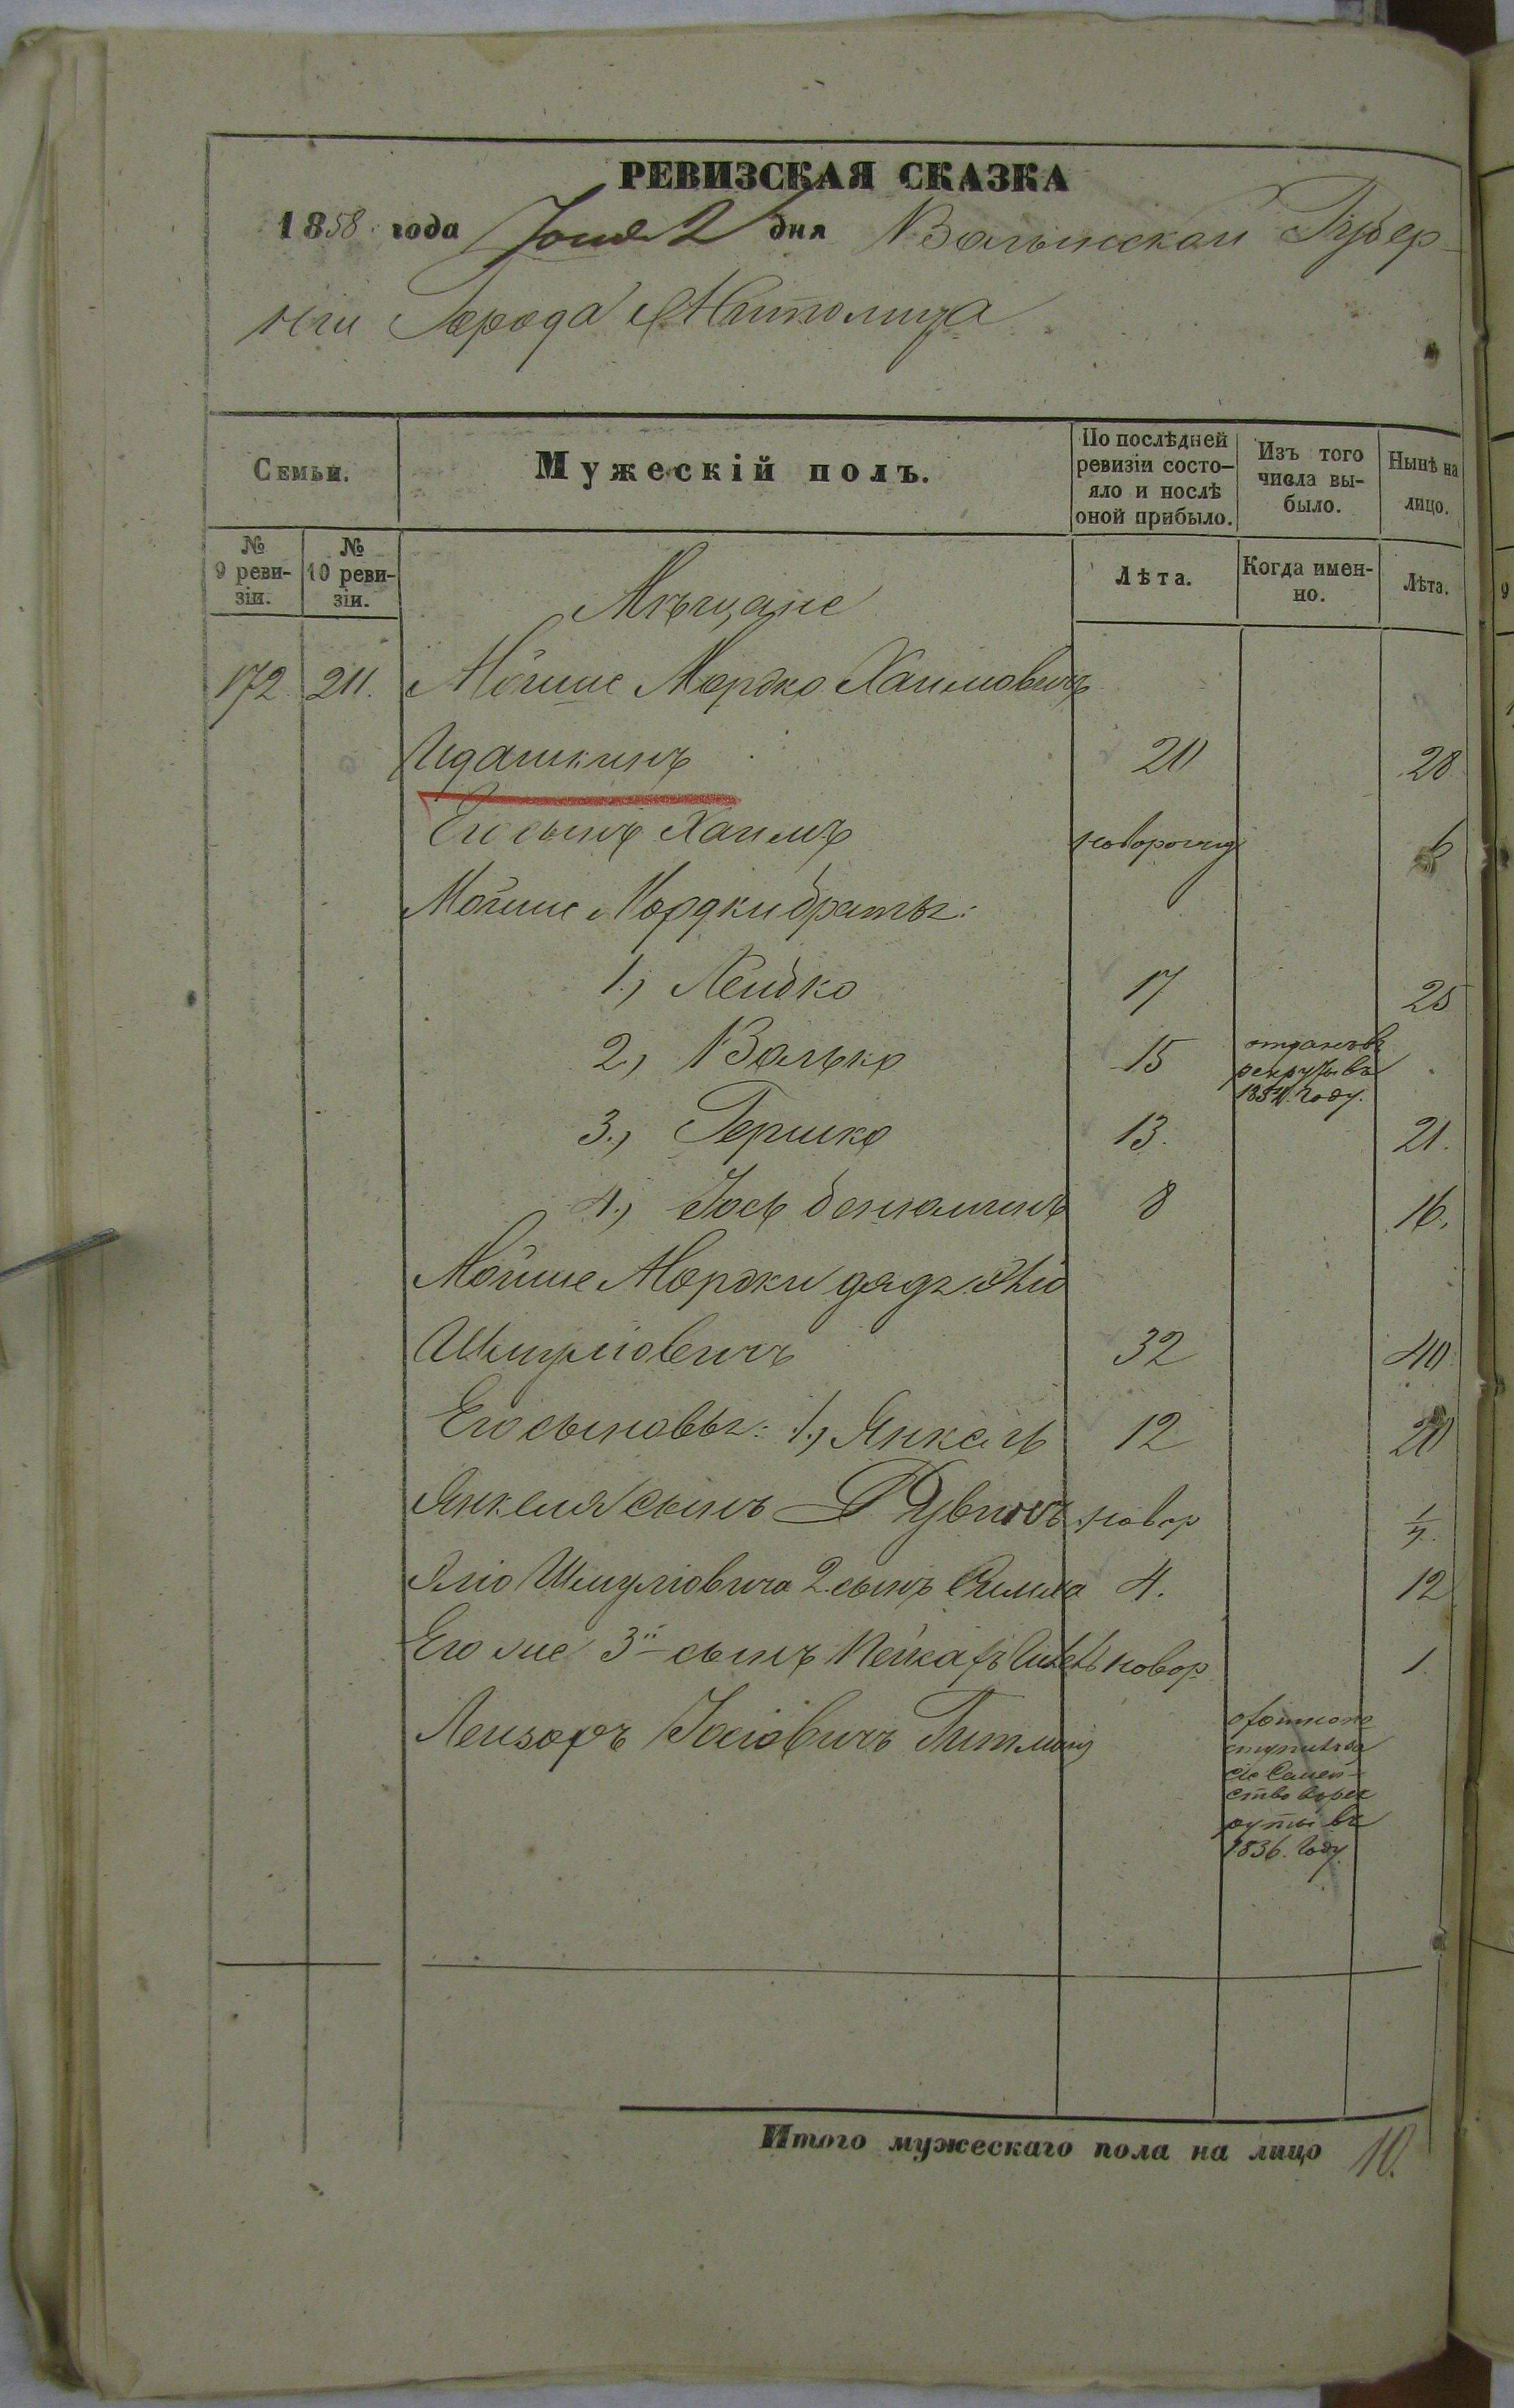 РЕВИЗСКАЯ СКАЗКА
1858 года Іюня 2 дня Волынской Губер-
ніи Города Житомира
Семьи.
Мужескій полъ.
По послѣдней ревизіи состо-
яло и послѣ оной прибыло.
Изъ того числа вы-
было.
Нынѣ на лицо.
№ 9 реви-
зіи.
№ 10 реви-
зіи.
Лѣта.
Когда имен-
но.
Лѣта.
Мѣщане
172 211. Мойше Мордко Хаимовичъ
20 28
Его сынъ Хаимъ новорожд 6
Мойше Мордки братья:
1., Лейбко 17 25
2., Волько 15 отданъ въ
рекруты въ
1854. году.
3., Гершко 13. 21.
4., Іось беніаминъ 8 16.
Мойше Мордки дядя Эліо
Шмуліовичъ 32 40
Его сыновья: 1., Янкель 12 20
Янкеля сынъ Рувинъ новор
Эліо Шмуліовича 2. сынъ Симха 4. 12
Его же 3й сынъ новор. 1.
Лейзоръ Іосіовичъ Гитманъ
сіе Семей-
ство въ рек
руты въ
1836. году.
Итого мужескаго пола на лицо 10.